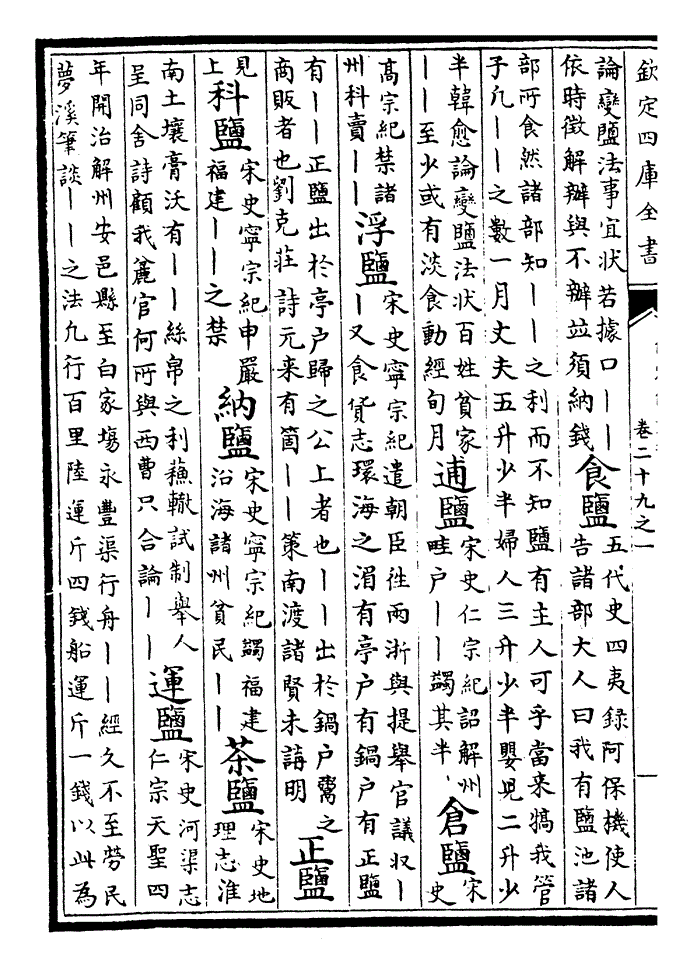 欽定四庫全書
卷二十九之一
論變鹽法事宜狀若據口丨丨
依時徵解辦與不辦並須納錢
食鹽
五代史四夷録阿保機使人
告諸部大人曰我有鹽池諸
部所食然諸部知丨丨之利而不知鹽有主人可乎當来犒我管
子凢丨丨之數一月丈夫五升少半婦人三升少半嬰兒二升少
半韓愈論變鹽法狀百姓貧家
丨丨至少或有淡食動經旬月
逋鹽
宋史仁宗紀詔解州
畦户丨丨蠲其半
倉鹽
宋
史
髙宗紀禁諸
州科賣丨丨
浮鹽
宋史寧宗紀遣朝臣徃兩浙與提舉官議収丨
丨又食貨志環海之湄有亭户有鍋户有正鹽
有丨丨正鹽出於亭户歸之公上者也丨丨出於鍋户鬻之
商販者也劉克莊詩元来有箇丨丨策南渡諸賢未講明
正鹽
見
上
科鹽
宋史寧宗紀申嚴
福建丨丨之禁
納鹽
宋史寧宗紀蠲福建
沿海諸州貧民丨丨
茶鹽
宋史地
理志淮
南土壤膏沃有丨丨絲帛之利蘓轍試制舉人
呈同舍詩顧我麄官何所與西曹只合論丨丨
運鹽
宋史河渠志
仁宗天聖四
年開治解州安邑縣至白家塲永豐渠行舟丨丨經久不至勞民
夢溪筆談丨丨之法凢行百里陸運斤四錢船運斤一錢以此為